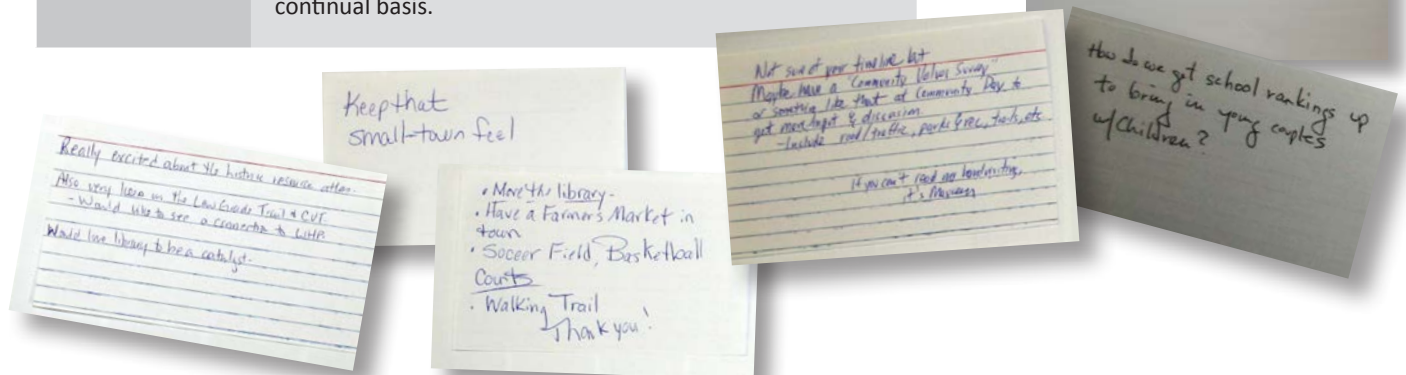 continual basis.
Keep that
small-town feel
Really excited about the historic resource
Also very keen on the Low Grade Trail & CVT
- Would like to see a connector to
Would love library to be a catalyst.
• Move the library -
• Have a Farmers Market in
town
• Soccer Field, Basketball
Courts
• Walking Trail
Thank you!
Not sure of your timeline but
Maybe have a "Community Values Survey"
or something like that at Community Day to
get more input & discussion
- Include road/traffic, parks & rec, trails, etc
if you can't read my handwriting,
it's
How do we get school rankings up
to bring in young couples
w/Children?